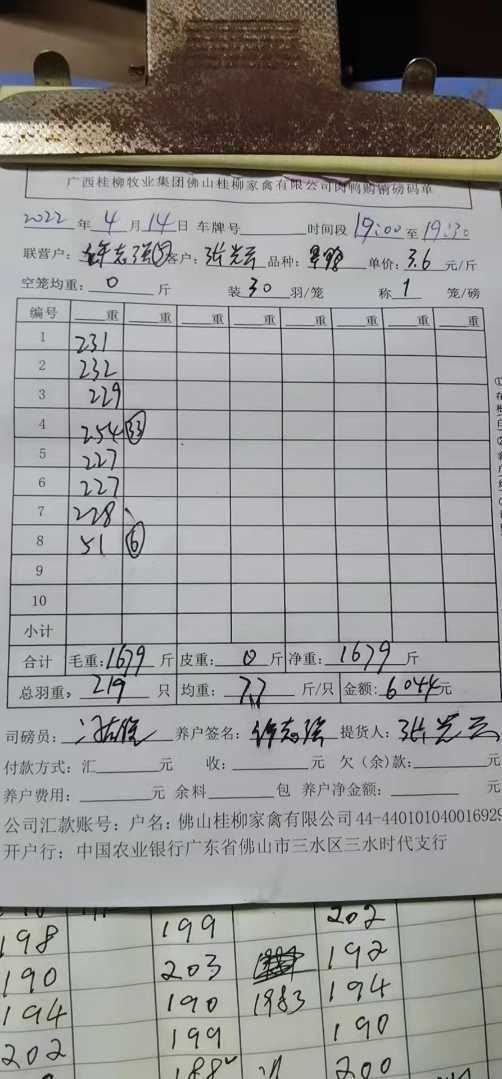 广西桂柳牧业集团佛山桂柳家禽有限公司肉鸭购销磅码单
2022年4月14日 车牌号 时间段19:00至19:30
联营户: 徐志强 客户: 张光云 品种: 单价: 3.6元/斤
空笼均重: 0斤 装30羽/笼 称1笼/磅
编号 重 重 重 重 重 重 重 重
1 231
2 232
3 229
4 254 33
5 227
6 227
7 228
8 51 6
9
10
小计
合计 毛重: 1679斤 皮重: 0斤 净重: 1679斤
总羽重: 219只 均重: 7.7斤/只 金额: 6044元
司磅员: 养户签名: 徐志强 提货人: 张光云
付款方式: 汇 元 收: 元 欠(余)款: 元
养户费用: 元 余料 包 养户净金额: 元
公司汇款账号: 户名: 佛山桂柳家禽有限公司 44-440101040016929
开户行: 中国农业银行广东省佛山市三水区三水时代支行
199 202
198 203 192
190 190 1983 194
194 199 190
202 188 200